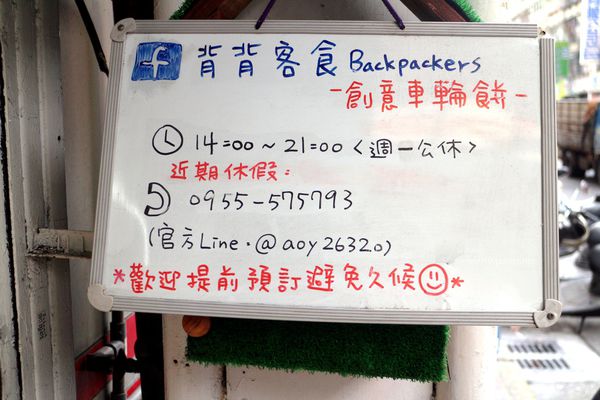 f 背背客食 Backpackers
-創意車輪餅-
14:00~21:00<週一公休>
近期休假:
0955-575793
(官方Line.@aoy2632o)
*歡迎提前預訂避免久候☺*